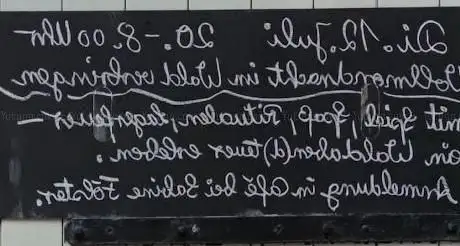 Di. 12. Juli 20.-8.00 Uhr
Vollmondnacht im Wald verbringen
mit Spiel, Spaß, Ritualen, Lagerfeuer –
ein Waldaben(d)teuer erleben.
Anmeldung in Café bei Sabine Fölster.